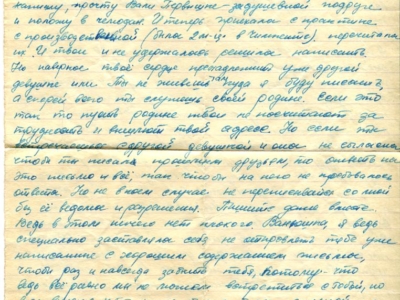 капишу, просту Вали Первушке-задушевной подруге
и положу в чемодан. И теперь приехала с практики
с производственной (была 2м-ца в Чимкенте), перечитала
их. И твои и не удержалась решила написать.
Но наверное твоё сердце принадлежит уже другой
девушке или Ты не живёшь там куда я буду писать,
а скорей всего ты служишь своей родине. Если это
так то пусть родные твои не посчитают за
трудность и вышлют твой адрес. Но если ты
встречаешься с другой девушкой и она не согласна
чтоб ты писал прошлым друзьям, то ответь на
это письмо и всё; так чтобы на него не требовалось
ответа. Но не в коем случае не переписывайся со мной
бы её ведома и разрешения. Пишите даже вместе.
Ведь в этом ничего нет плохого Ванюшка, я ведь
специально заставила себя не отправлять тебе уже
написанные с хорошим содержанием письма,
чтобы раз и навсегда забыть тебя, потому-что
ведь всё равно мы не можем встретиться с тобой, но